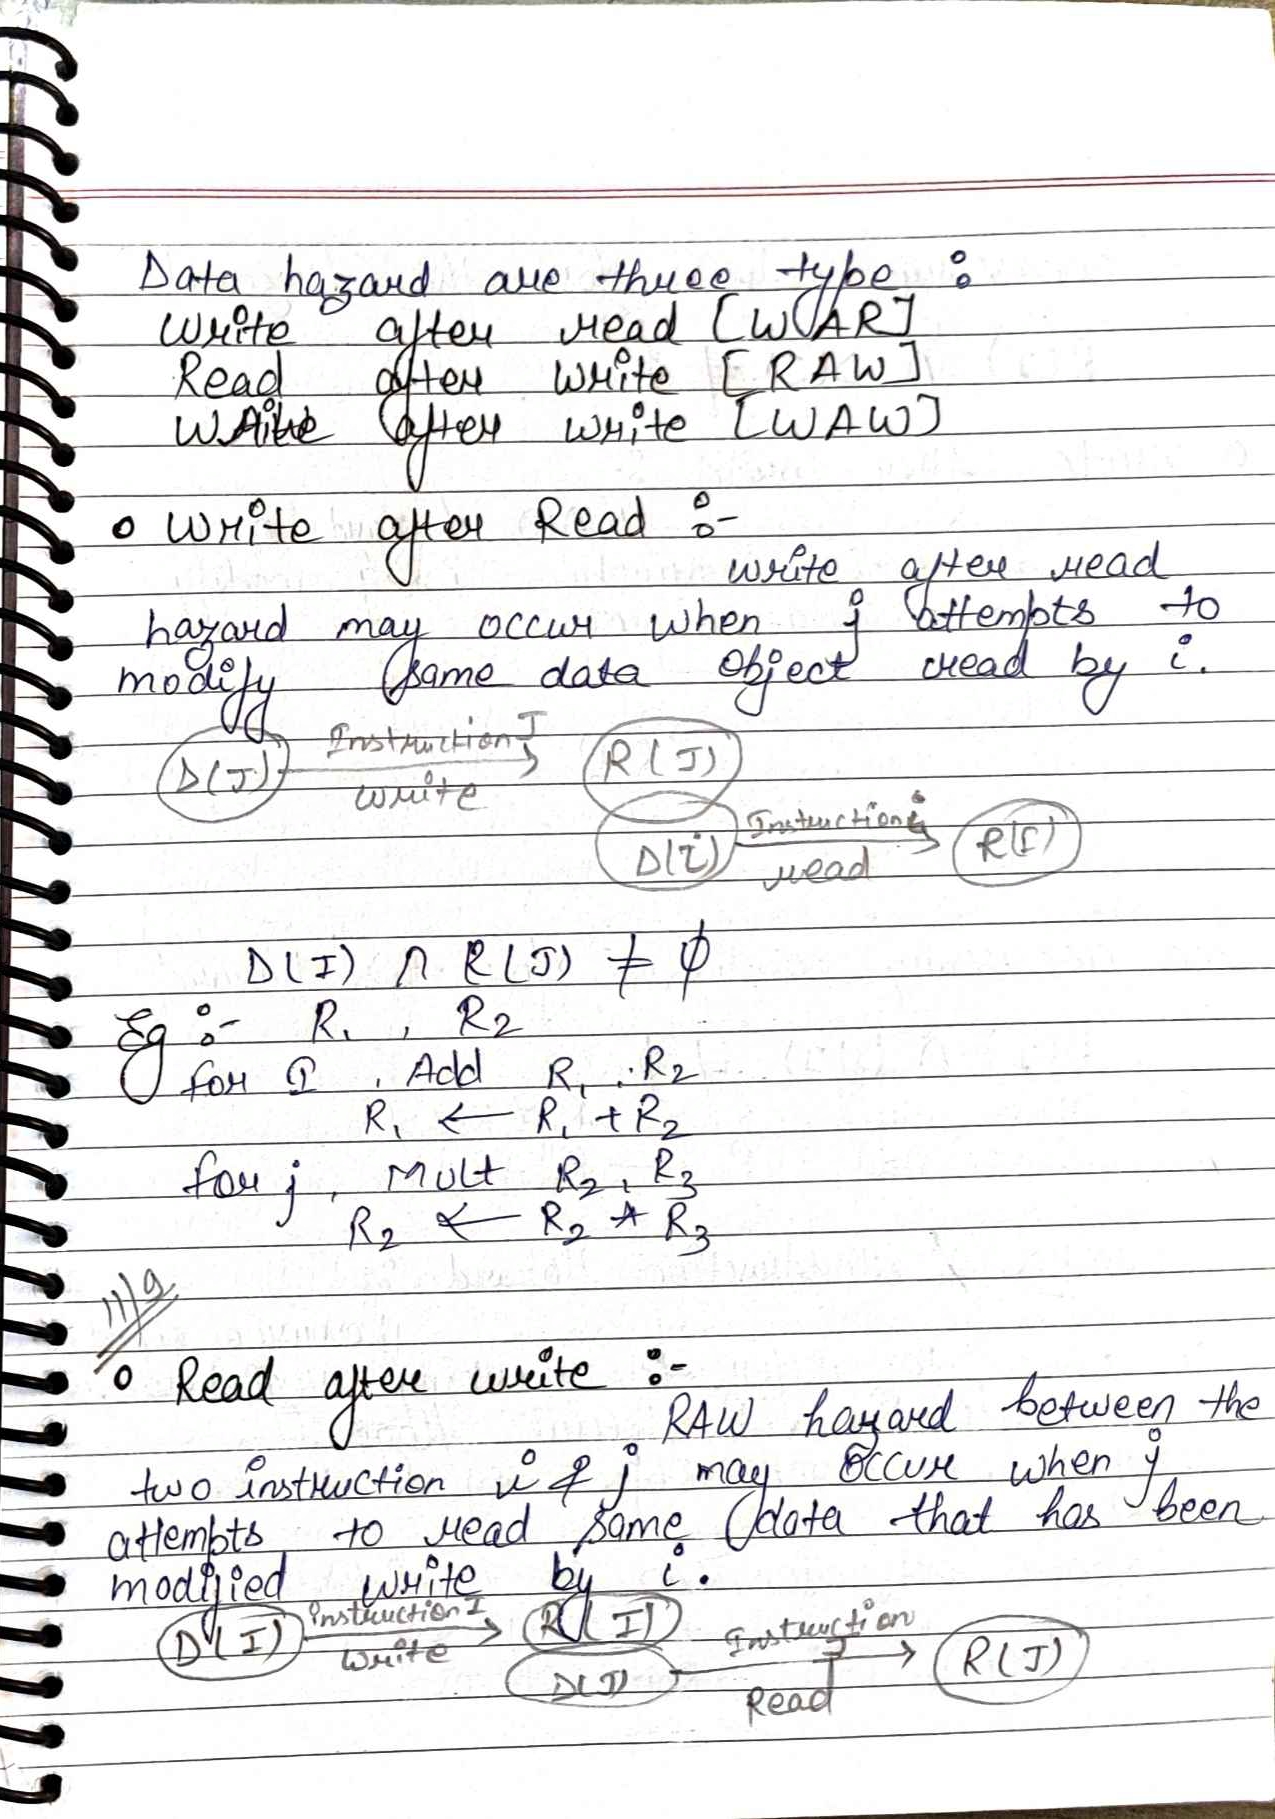 Data hazard are three type :
Write after read [WAR]
Read after write [RAW]
Write after write [WAW]
o Write after Read :-
write after read
hazard may occur when j attempts to
modify same data object read by i.
D(J) Instruction J write R(J)
D(i) Instruction i read R(I)
D(I) ∩ R(J) ≠ φ
Eg :- R1 , R2
for I , Add R1 , R2
R1 ← R1 + R2
for j , Mult R2 , R3
R2 ← R2 * R3
11/9
o Read after write :-
RAW hazard between the
two instruction i & j may occur when j
attempts to read same data that has been
modified write by i.
D(I) Instruction I write R(I)
D(J) Instruction J Read R(J)